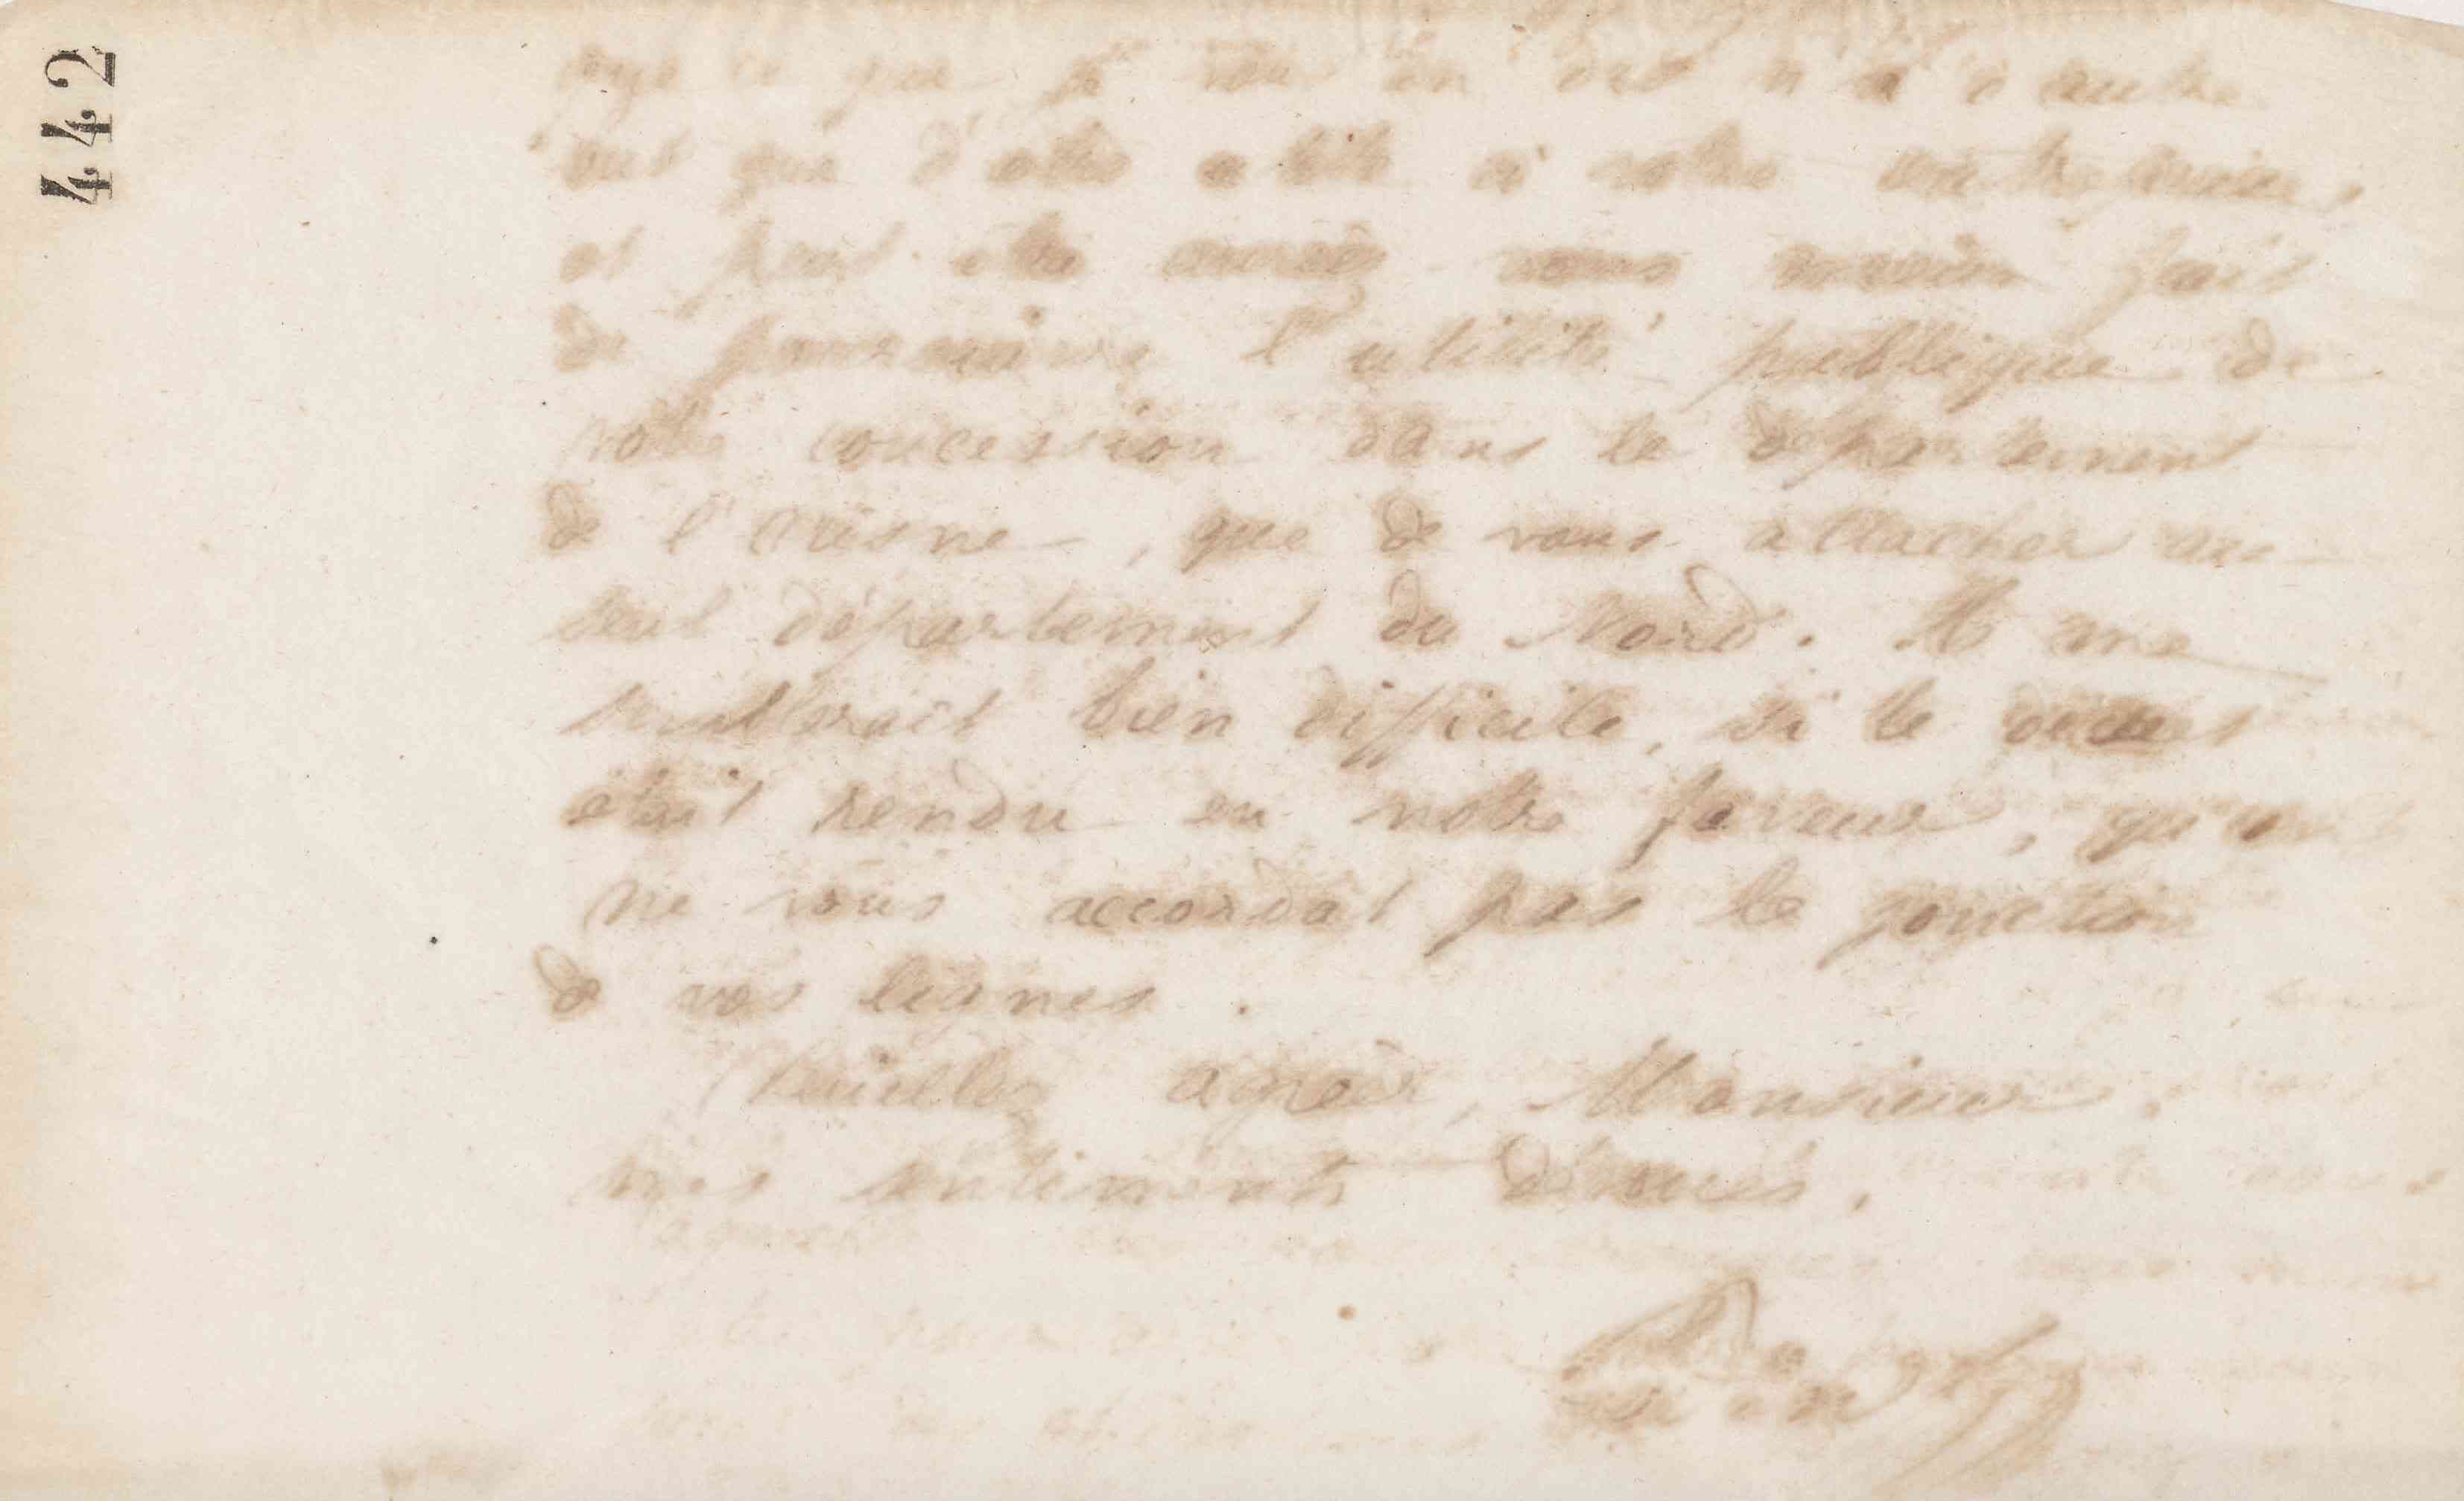 442
que je vous en dis n'a d'autre
but que d'être utile à votre entreprise,
et peut-être auriez-vous mieux fait
de poursuivre l'utilité publique de
votre concession dans le département
de l'Aisne, que de vous attacher au
seul département du Nord. Il me
semblerait bien difficile, si le décret
était rendu en notre faveur, qu'on
ne vous accordât pas la jonction
de vos lignes.
Veuillez agréer, Monsieur,
mes sentiments dévoués.